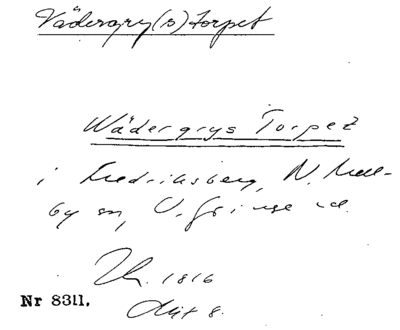 Vädergry(s)torpet
Wädergrys Torpet
i Fredriksberg, N. Mell-
by sn, V. Göinge hd.
1816
Akt 8.
Nr 8311.